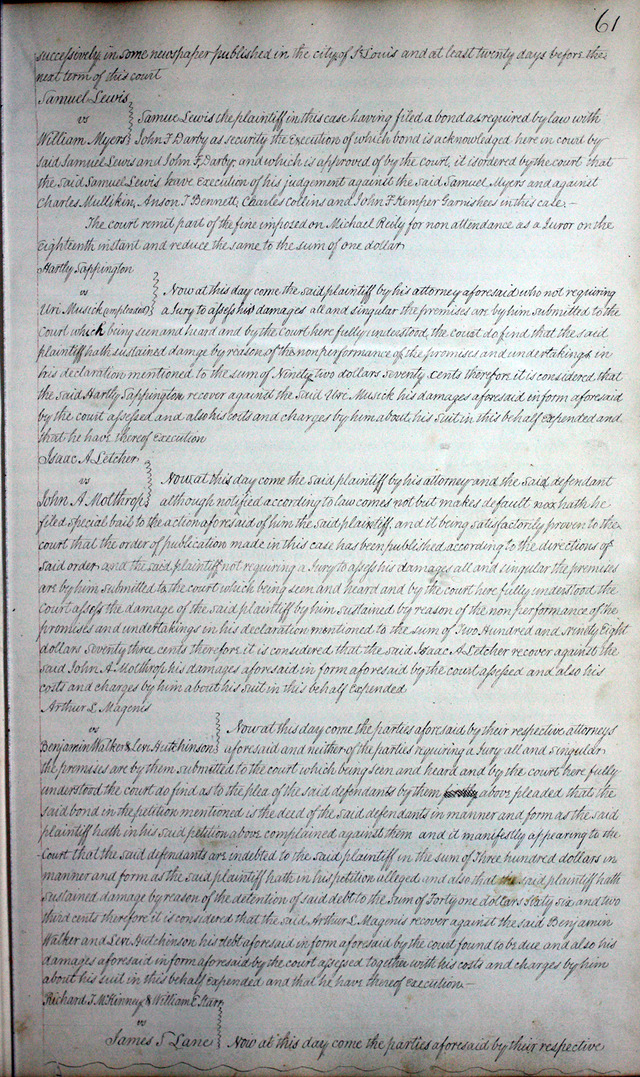 61
successively, in some newspaper published in the city of St Louis and at least twenty days before the
next term of this court
Samuel Lewis
vs
William Myers
Samuel Lewis the plaintiff in this case having filed a bond as required by law with
John F Darby as security the Execution of which bond is acknowledged here in court by
said Samuel Lewis and John F. Darby, and which is approved of by the court, it is ordered by the court that
the said Samuel Lewis leave Execution of his judgement against the said Samuel Myers and against
Charles Mulliken, Anson T Bennett, Charles Collins and John F Kemper Garnishees in this case.—
The court remit part of the fine imposed on Michael Reily for non attendance as a Juror on the
Eighteenth instant and reduce the same to the sum of one dollar
Hartly Sappington
vs
Uri Musick impleaded
Now at this day come the said plaintiff by his attorney aforesaid who not requiring
a Jury to assess his damages all and singular the premises are by him submitted to the
Court which being seen and heard and by the court here fully understood, the court do find that the said
plaintiff hath sustained damage by reason of the nonperformance of the promises and undertakings in
his declaration mentioned to the sum of Ninety two dollars Seventy cents therefore it is considered that
the said Hartly Sappington recover against the said Uri Musick his damages aforesaid in form aforesaid
by the court assessed and also his costs and charges by him about his Suit in this behalf Expended and
that he have thereof execution
Isaac A Letcher
vs
John A. Molthrop
Now at this day come the said plaintiff by his attorney and the said defendant
although notified according to law comes not but makes default nor hath he
filed special bail to the action aforesaid of him the said plaintiff, and it being satisfactorily proven to the
court that the order of publication made in this case has been published according to the directions of
said order, and the said plaintiff not requiring a Jury to assess his damages all and singular the premises
are by him submitted to the court which being seen and heard and by the court here fully understood the
Court assess the damage of the said plaintiff by him sustained by reason of the non performance of the
promises and undertakings in his declaration mentioned to the sum of Two Hundred and Ninety Eight
dollars Seventy three cents therefore it is considered that the said Isaac A Letcher recover against the
said John A. Molthrop his damages aforesaid in form aforesaid by the court assessed and also his
costs and charges by him about his suit in this behalf expended
Arthur L. Magenis
vs
Benjamin Walker & Levi Hutchinson
Now at this day come the parties aforesaid by their respective attorneys
aforesaid and neither of the parties requiring a Jury all and singular
the premises are by them submitted to the court which being seen and heard and by the court here fully
understood the court do find as to the plea of the said defendants by them above pleaded that the
said bond in the petition mentioned is the deed of the said defendants in manner and form as the said
plaintiff hath in his said petition above complained against them and it manifestly appearing to the
Court that the said defendants are indebted to the said plaintiff in the sum of Three hundred dollars in
manner and form as the said plaintiff hath in his petition alleged and also that the said plaintiff hath
sustained damage by reason of the detention of said debt to the Sum of Forty one dollars Sixty six and two
third cents therefore it is considered that the said Arthur L Magenis recover against the said Benjamin
Walker and Levi Hutchinson his debt aforesaid in form aforesaid by the court found to be due and also his
damages aforesaid in form aforesaid by the court assessed together with his costs and charges by him
about his suit in this behalf Expended and that he have thereof execution.—
Richard T. McKinney & William E Starr
vs
James S Lane
Now at this day come the parties aforesaid by their respective